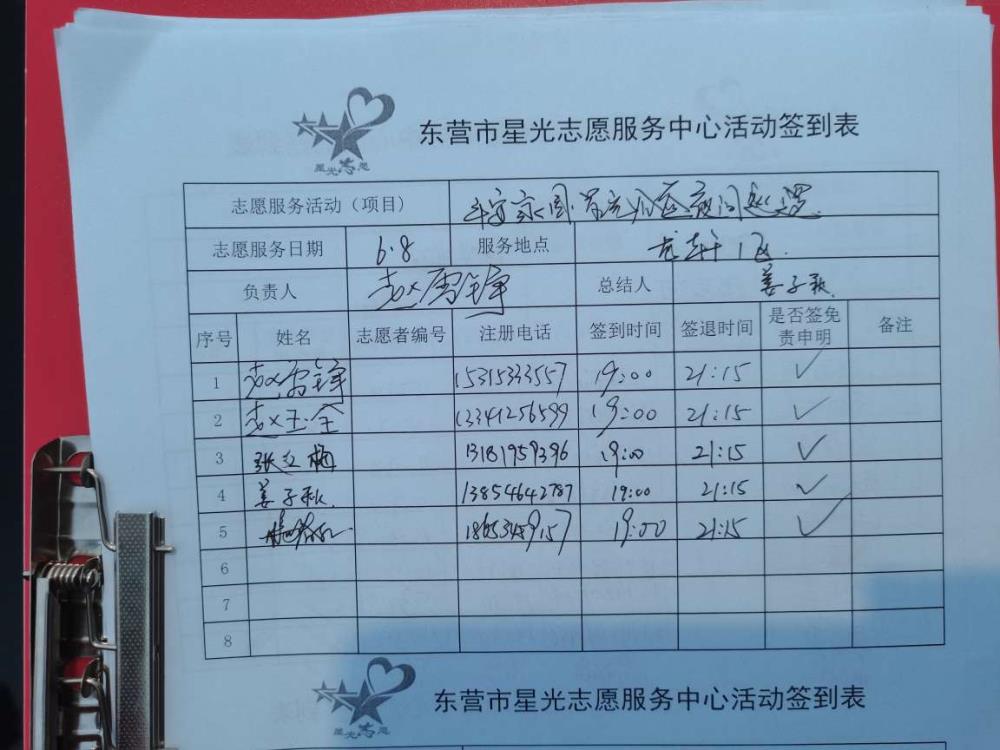 星光志愿
东营市星光志愿服务中心活动签到表
志愿服务活动（项目） 平安家园·夜间巡逻
志愿服务日期 6.8 服务地点 龙轩1区
负责人 赵雷锋 总结人 姜子秋
序号 姓名 志愿者编号 注册电话 签到时间 签退时间 是否签免责申明 备注
1 赵雷锋 15315333557 19:00 21:15 ✓
2 赵玉全 13341256599 19:00 21:15 ✓
3 张红梅 13181959396 19:00 21:15 ✓
4 姜子秋 13854642787 19:00 21:15 ✓
5 19:00 21:15 ✓
6
7
8
星光志愿
东营市星光志愿服务中心活动签到表